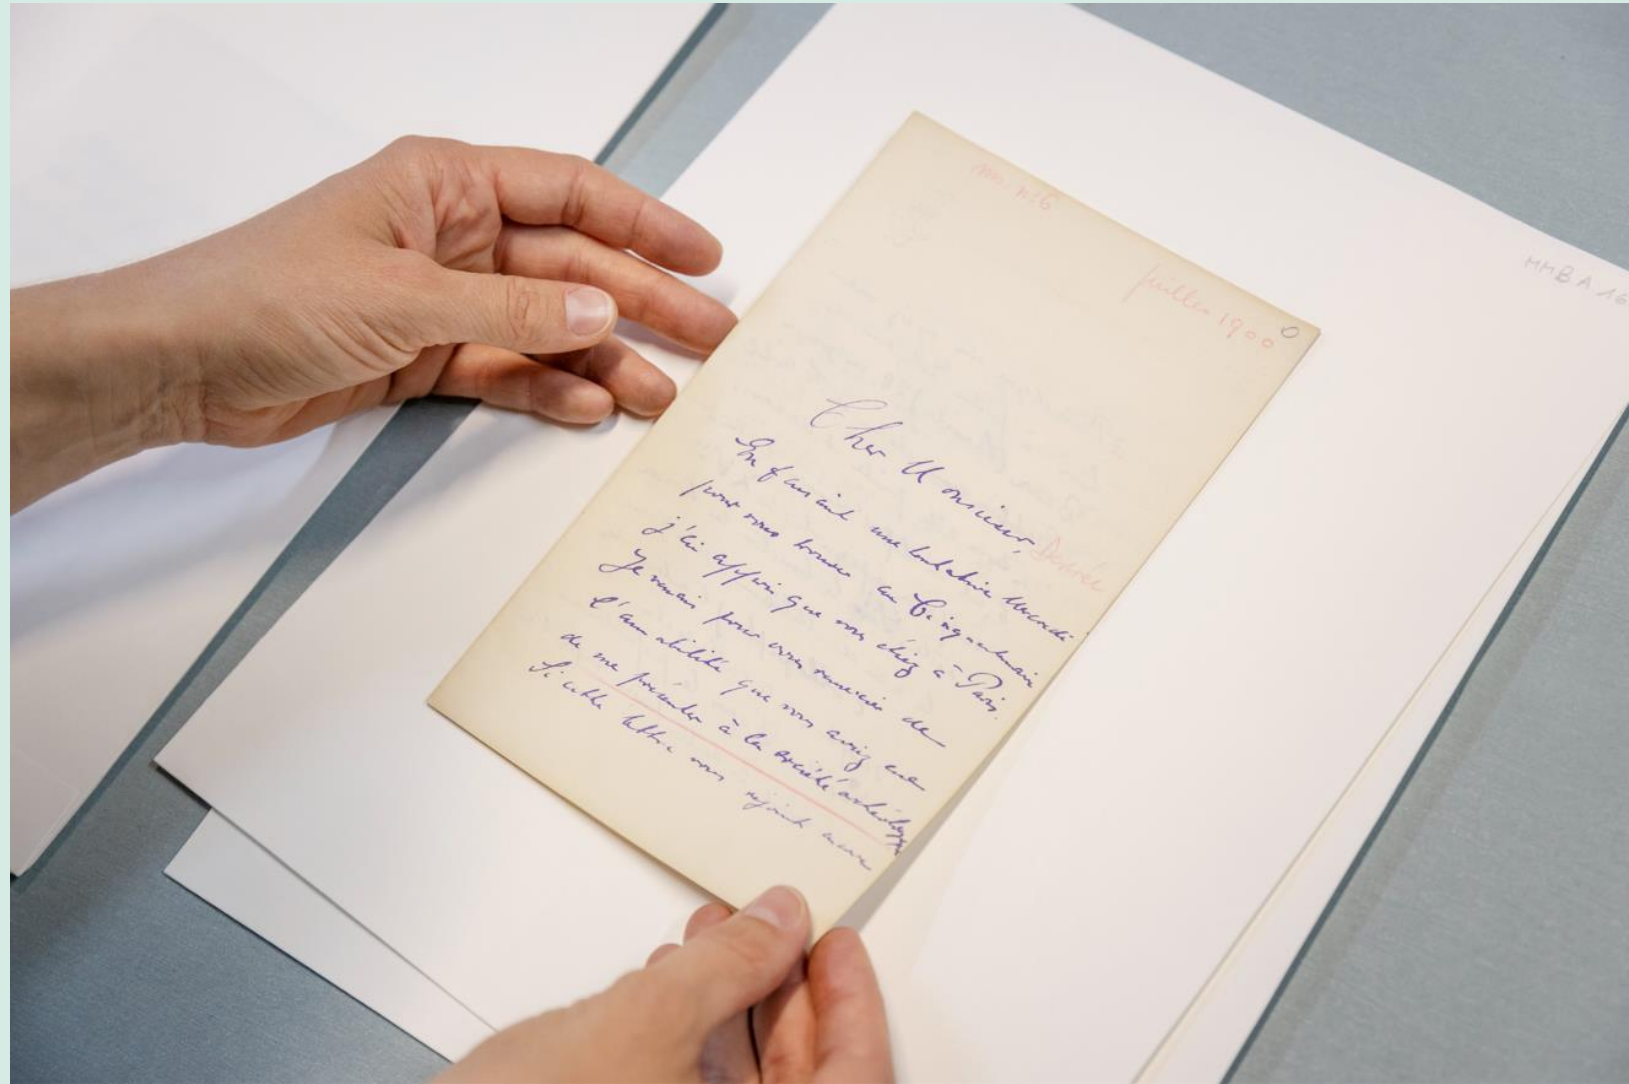 juillet 1900
MMB A 16
Cher Monsieur,
En faisant une tentative mercredi
pour vous trouver au Cinquantenaire
j'ai appris que vous étiez à Paris.
Je venais pour vous remercier de
l'amabilité que vous aviez eue
de me présenter à la société archéolog
Si cette lettre vous rejoint encore